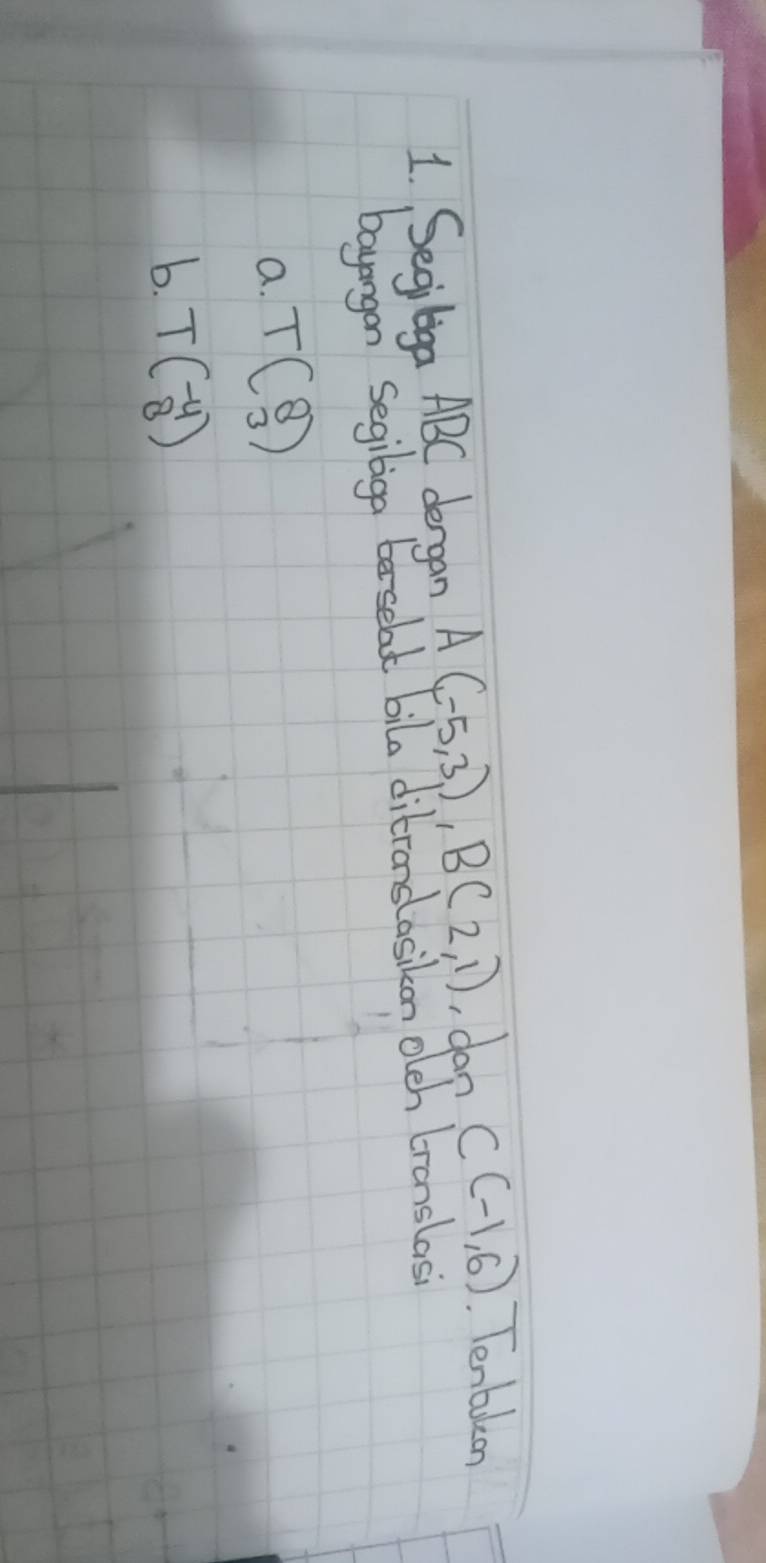 1. Segitiga ABC dengan A (-5,3), B(2,1), dan C(-1,6). Tentukan
bayangan segitiga tersebut bila ditranslasikan oleh translasi
a. T (8 3)
b. T (-4 8)